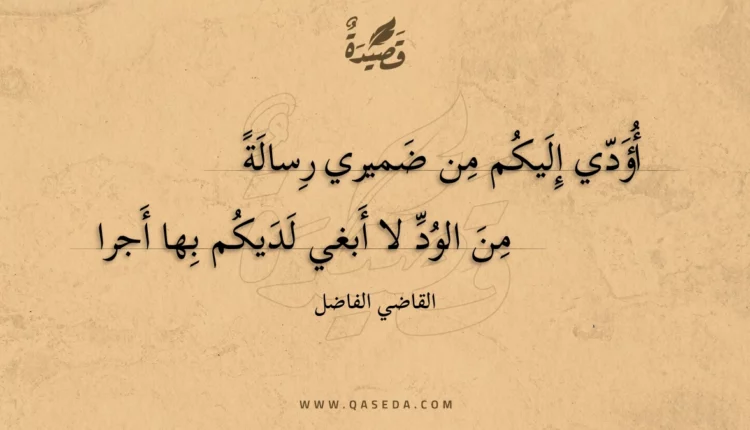 قَصِيْدَةٌ
أُؤَدّي إِلَيكُم مِن ضَميري رِسالَةً
مِنَ الوُدِّ لا أَبغي لَدَيكُم بِها أَجرا
القاضي الفاضل
WWW.QASEDA.COM